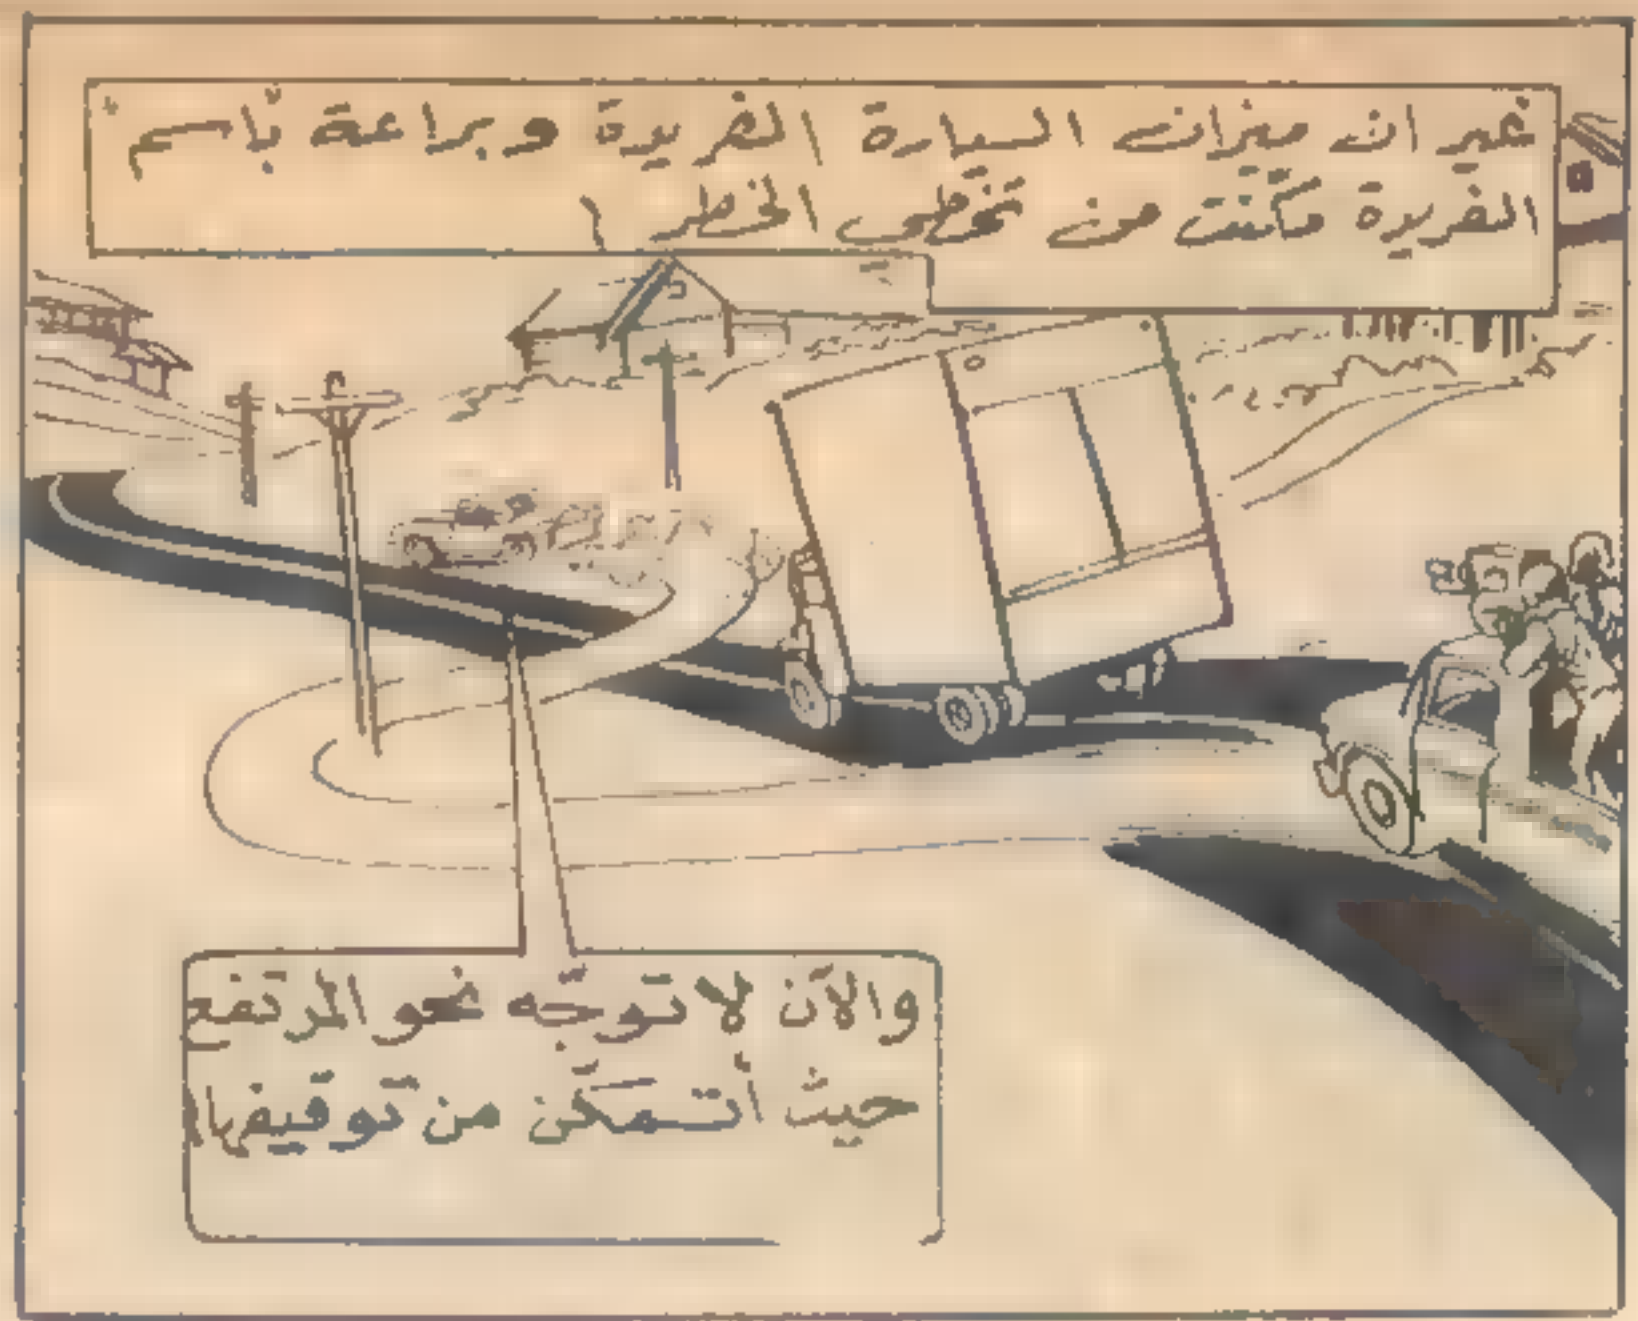 غير ان ميزات السيارة الفريدة وبراعة بّاسم
الفريدة مكّنت من تخطّي الخطر !
والآن لاتوجّه نحو المرتفع
حيث أتمكّن من توقيفها !